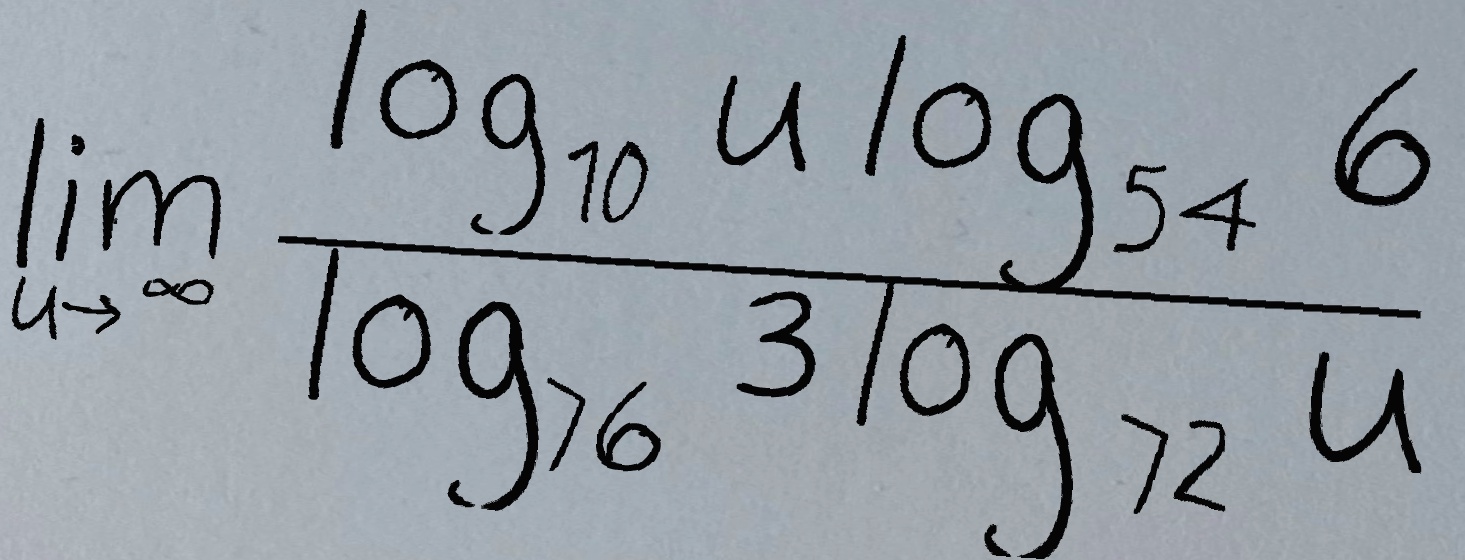 \lim_{u \to \infty} \frac{\log_{10} u \log_{54} 6}{\log_{76} 3 \log_{72} u}